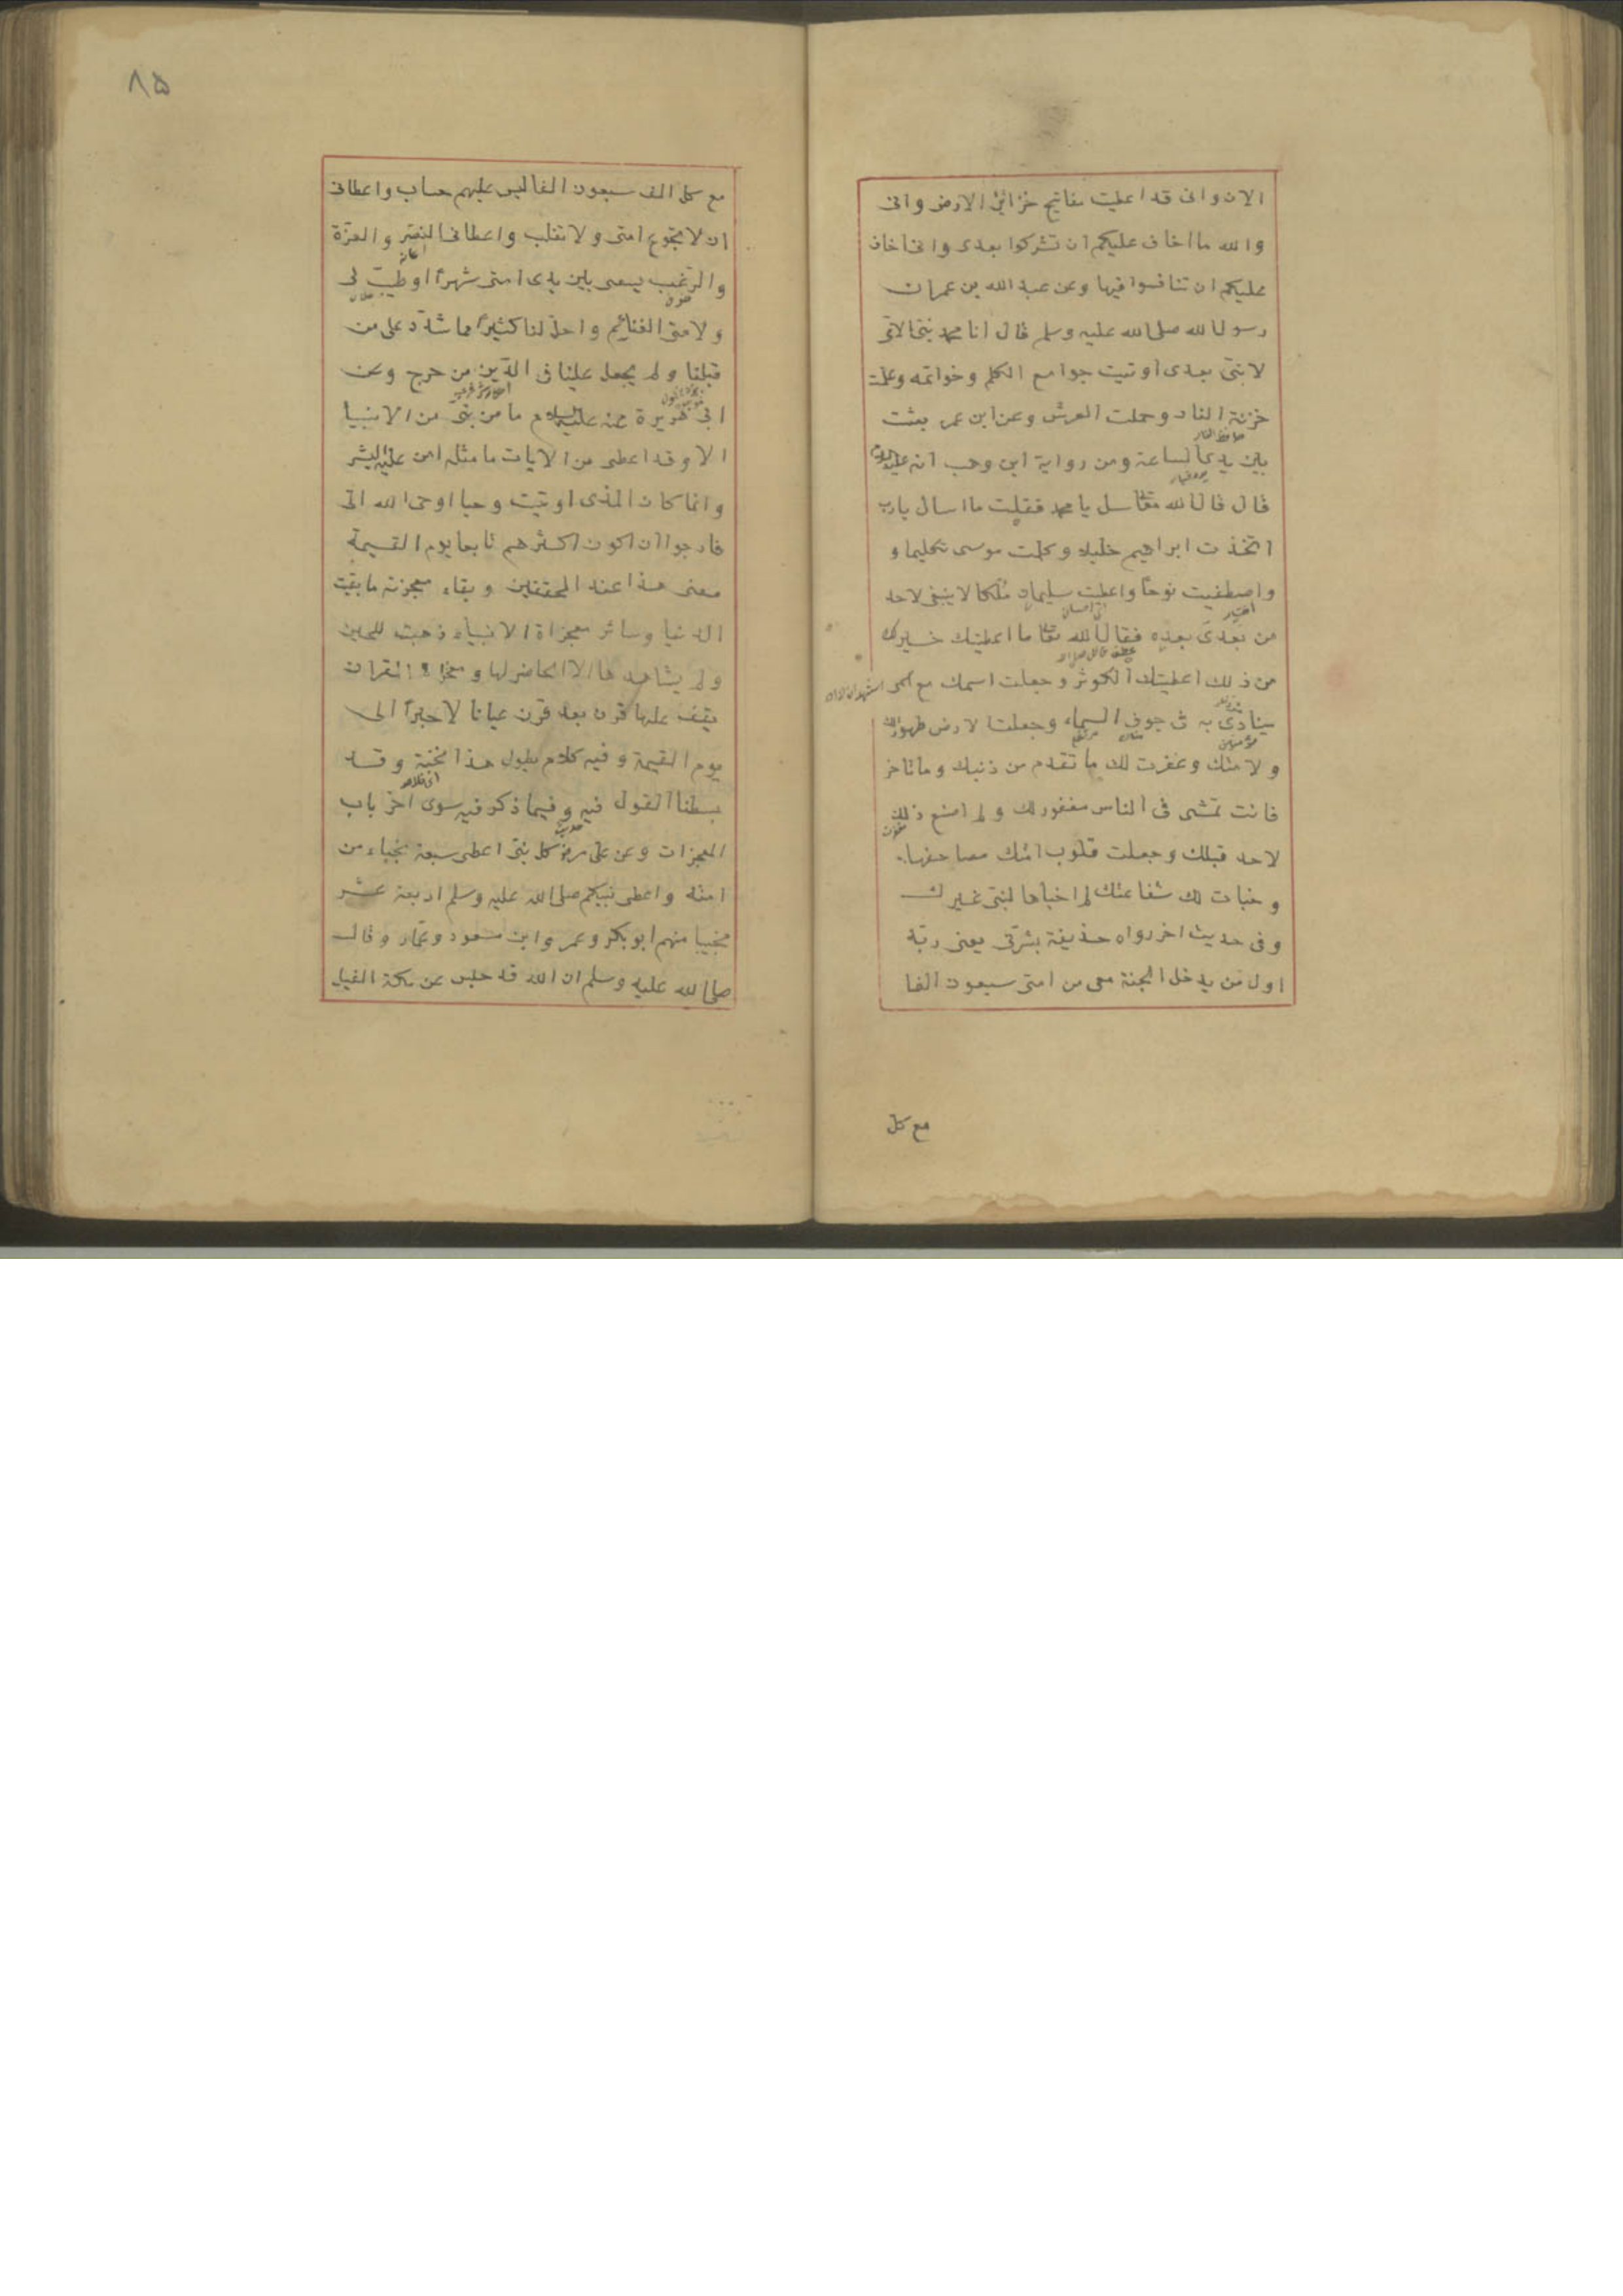 الان وانى قد اعطيت مفاتيح خزائن الارض وانى
والله ما اخاف عليكم ان تشركوا بعدى وانى اخاف
عليكم ان تنافسوا فيها وعن عبد الله بن عمران
رسول الله صلى الله عليه وسلم قال انا محمد نبى الامّى
لا نبى بعدى اوتيت جوامع الكلم وخواتمه وعلمت
خزنة النار وحملت العرش وعن ابن عمر بعثت
بين يدى الساعة ومن رواية ابن وهب انه عليه
قال قال الله تعا سل يا محمد فقلت ما اسال يارب
اتخذت ابراهيم خليلا وكلمت موسى تكليما و
واصطفيت نوحا واعطيت سليمان ملكا لا ينبغى لاحد
من بعدى بعده فقال الله تعا ما اعطيتك خير لك
من ذلك اعطيتك الكوثر وجعلت اسمك مع اسمى
ينادى به فى جوف السماء وجعلت الارض طهورا لك
ولامتك وغفرت لك ما تقدم من ذنبك وما تاخر
فانت تمشى فى الناس مغفور لك ولم اصنع ذلك
لاحد قبلك وجعلت قلوب امتك مصاحفها
وخبات لك شفاعتك لم اخباها لنبى غيرك
وفى حديث اخر رواه حذيفة بشرنى يعنى ربه
اول من يدخل الجنة معى من امتى سبعون الفا
مع كل
٨۵
مع كل الف سبعون الفا ليس عليهم حساب واعطانى
ان لا تجوع امتى ولا تغلب واعطانى النصر والعزة
والرعب يسعى بين يدى امتى شهرا وطيب لى
ولامتى الغنائم واحل لنا كثيرا مما شدد على من
قبلنا ولم يجعل علينا فى الدين من حرج وعن
ابى هريرة عنه عليه السلام ما من نبى من الانبيا
الا وقد اعطى من الايات ما مثله امن عليه البشر
وانما كان الذى اوتيت وحيا اوحى الله الى
فارجوا ان اكون اكثرهم تابعا يوم القيمة
معنى هذا عند المحققين وبقاء معجزته ما بقيت
الدنيا وسائر معجزاة الانبياء ذهبت للحين
ولم يشاهدها الا الحاضر لها ومعجزة القران
يقف عليها قرن بعد قرن عيانا لا خبرا الى
يوم القيمة وفيه كلام يطول هذا نخبته وقد
بسطنا القول فيه وفيما ذكر فيه سوى اخر باب
المعجزات وعن على رض كل نبى اعطى سبعة نجباء من
امته واعطى نبيكم صلى الله عليه وسلم اربعة عشر
نجيبا منهم ابو بكر وعمر وابن مسعود وعمار وقال
صلى الله عليه وسلم ان الله قد حبس عن مكة الفيل